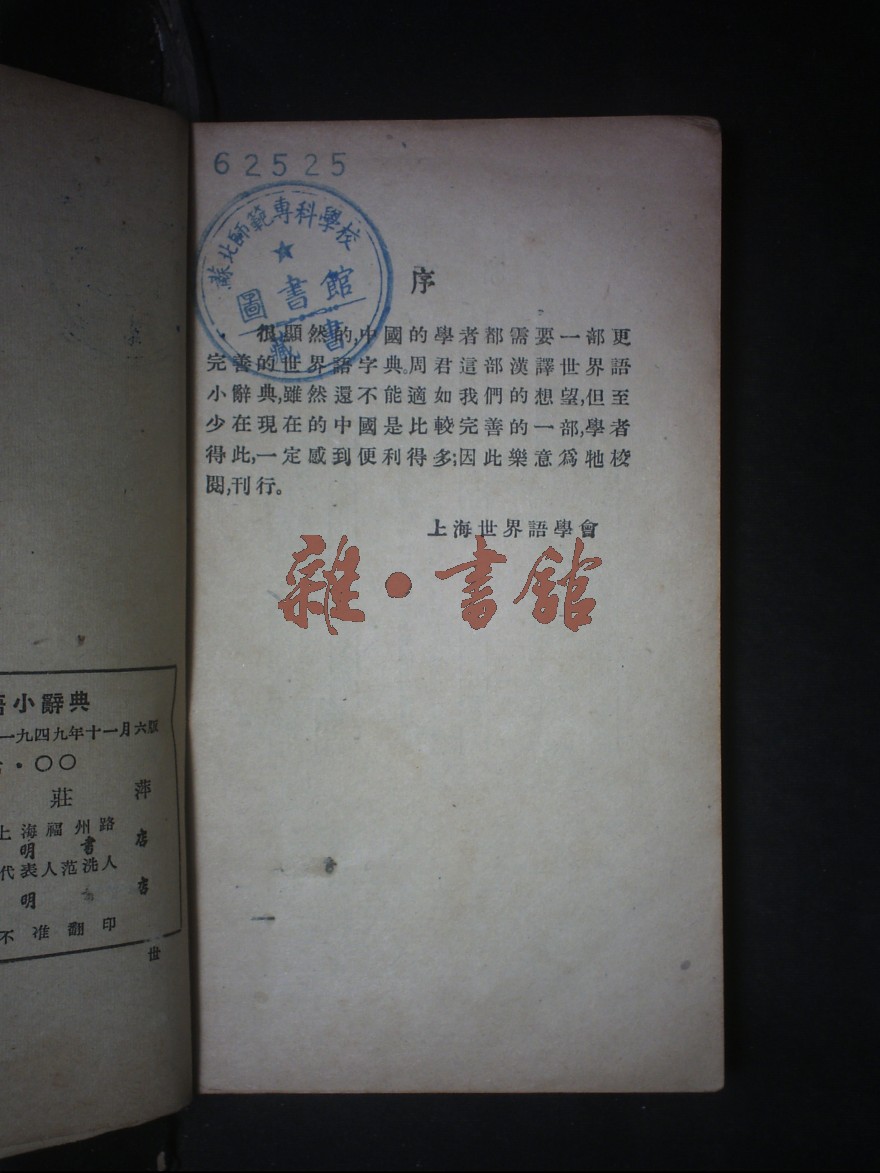 語小辭典
一九四九年十一月六版
·〇〇
莊 萍
上海福州路
明書店
代表人范洗人
明書店
不准翻印
世
62525
蘇北師範專科學校
圖書館
藏書
序
很顯然的,中國的學者都需要一部更
完善的世界語字典。周君這部漢譯世界語
小辭典,雖然還不能適如我們的想望,但至
少在現在的中國是比較完善的一部,學者
得此,一定感到便利得多;因此樂意爲牠校
閱,刊行。
上海世界語學會
雜·書館